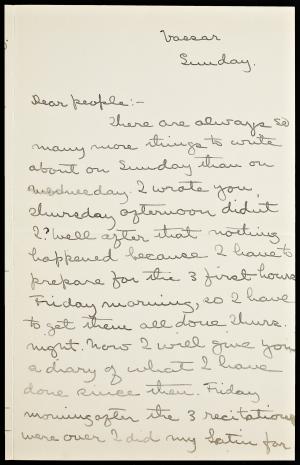 Vassar
Sunday.
Dear people:-
There are always so
many more things to write
about on Sunday than on
Wednesday. I wrote you,
Thursday afternoon didn't
I? Well after that nothing
happened because I have to
prepare for the 3 first hours
Friday morning, so I have
to get them all done Thurs.
night. Now I will give you
a diary of what I have
done since then. Friday
morning after the 3 recitations
were over I did my Latin for